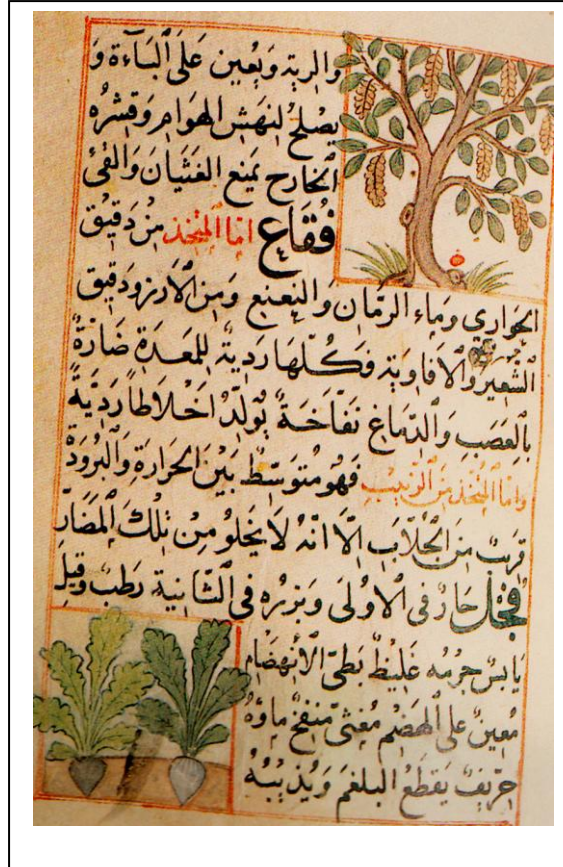 والرية ويعين على الباءة و
يصلح لنهش الهوام وقشره
الخارج يمنع الغثيان والقئ
فقاع اما المتخذ من دقيق
الحواري وماء الرمان والنعنع ومن الارز ودقيق
الشعير والافاوية فكلها ردية للمعدة ضارة
بالعصب والدماغ نفاخة يولد اخلاطا ردية
واما المتخذ من الزبيب فهو متوسط بين الحرارة والبرودة
قريب من الجلاب الا انه لا يخلو من تلك المضار
فجل حار في الاولى وبزره في الثانية رطب وقيل
يابس جرمه غليظ بطئ الانهضام
معين على الهضم مغثى منفخ ماؤه
حريف يقطع البلغم ويذيبه